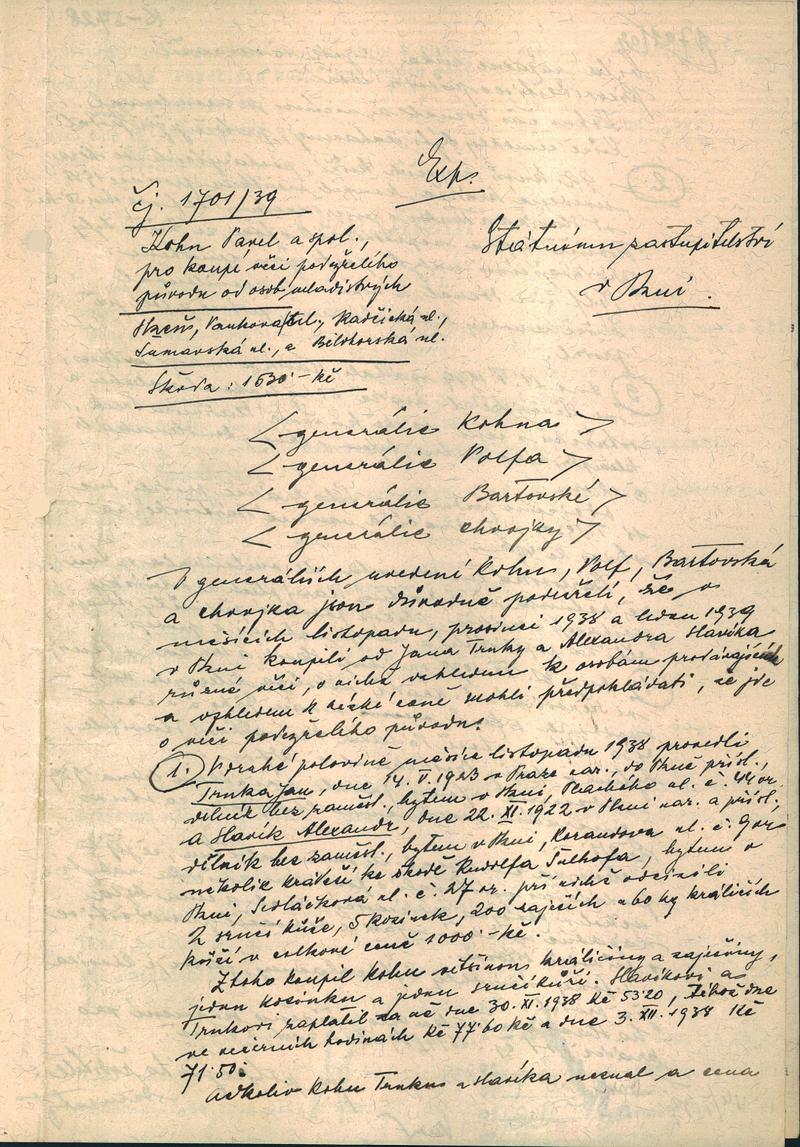 Exp.
Čj. 1701/39
Kohn Pavel a spol.,
pro koupě věci podezřelého
původu od osob mladistvých
Plzeň, ul., Radčická ul.,
Šumavská ul., a Bělohorská ul.
Škoda: 1630·– Kč
Státnímu zastupitelství
v Plzni.
< generálie Kohna >
< generálie Volfa >
< generálie Bartovské >
< generálie Chvojky >
V generáliích uvedení Kohn, Volf, Bartovská
a Chvojka jsou důvodně podezřelí, že v
měsících listopadu, prosinci 1938 a lednu 1939
v Plzni koupili od Jana Trnky a Alexandra Slavíka
různé věci, o nichž vzhledem k osobám prodávajících
a vzhledem k nízké ceně mohli předpokládati, že jde
o věci podezřelého původu.
1. V druhé polovině měsíce listopadu 1938 provedli
Trnka Jan, dne 14. V. 1923 v Praze nar., do Plzně přísl.,
dělník bez zaměst., bytem v Plzni, ul. č. 44 or.
a Slavík Alexandr, dne 22. XI. 1922 v Plzni nar. a přísl.,
dělník bez zaměst., bytem v Plzni, Korandova ul. č. 9 or.
několik krádeží ke škodě Rudolfa, bytem v
Plzni, Sedláčkova ul. č. 27 or. při nichž odcizili
2 srnčí kůže, 5 kozinek, 200 zaječích a 60 kg králičích
koží v celkové ceně 1000·– Kč.
Z toho koupil Kohn většinou králičiny a zaječiny,
jednu kozinku a jednu srnčí kůži. Slavíkovi a
Trnkovi zaplatil za ně dne 30. XI. 1938 Kč 53·20, téhož dne
ve večerních hodinách Kč 77·60 Kč a dne 3. XII. 1938 Kč
71·50.
Ačkoliv Kohn Trnku a Slavíka neznal a cena